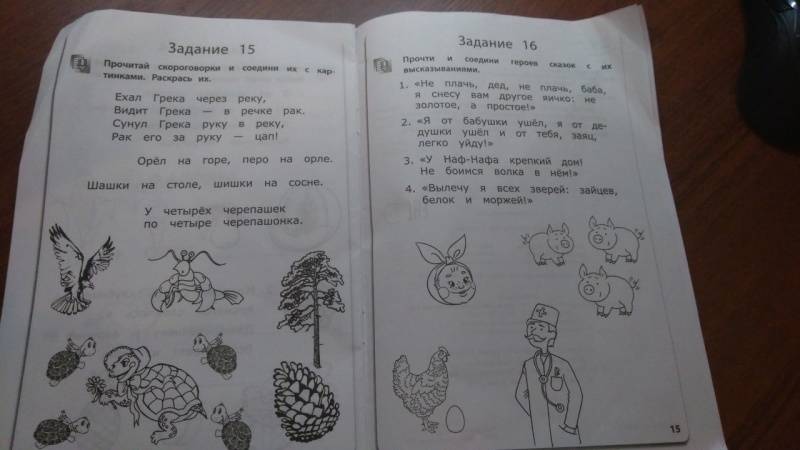 Задание 15
Прочитай скороговорки и соедини их с кар-
тинками. Раскрась их.
Ехал Грека через реку,
Видит Грека — в речке рак.
Сунул Грека руку в реку,
Рак его за руку — цап!
Орёл на горе, перо на орле.
Шашки на столе, шишки на сосне.
У четырёх черепашек
по четыре черепашонка.
Задание 16
Прочти и соедини героев сказок с их
высказываниями.
1. «Не плачь, дед, не плачь, баба,
я снесу вам другое яичко: не
золотое, а простое!»
2. «Я от бабушки ушёл, я от де-
душки ушёл и от тебя, заяц,
легко уйду!»
3. «У Наф-Нафа крепкий дом!
Не боимся волка в нём!»
4. «Вылечу я всех зверей: зайцев,
белок и моржей!»
15